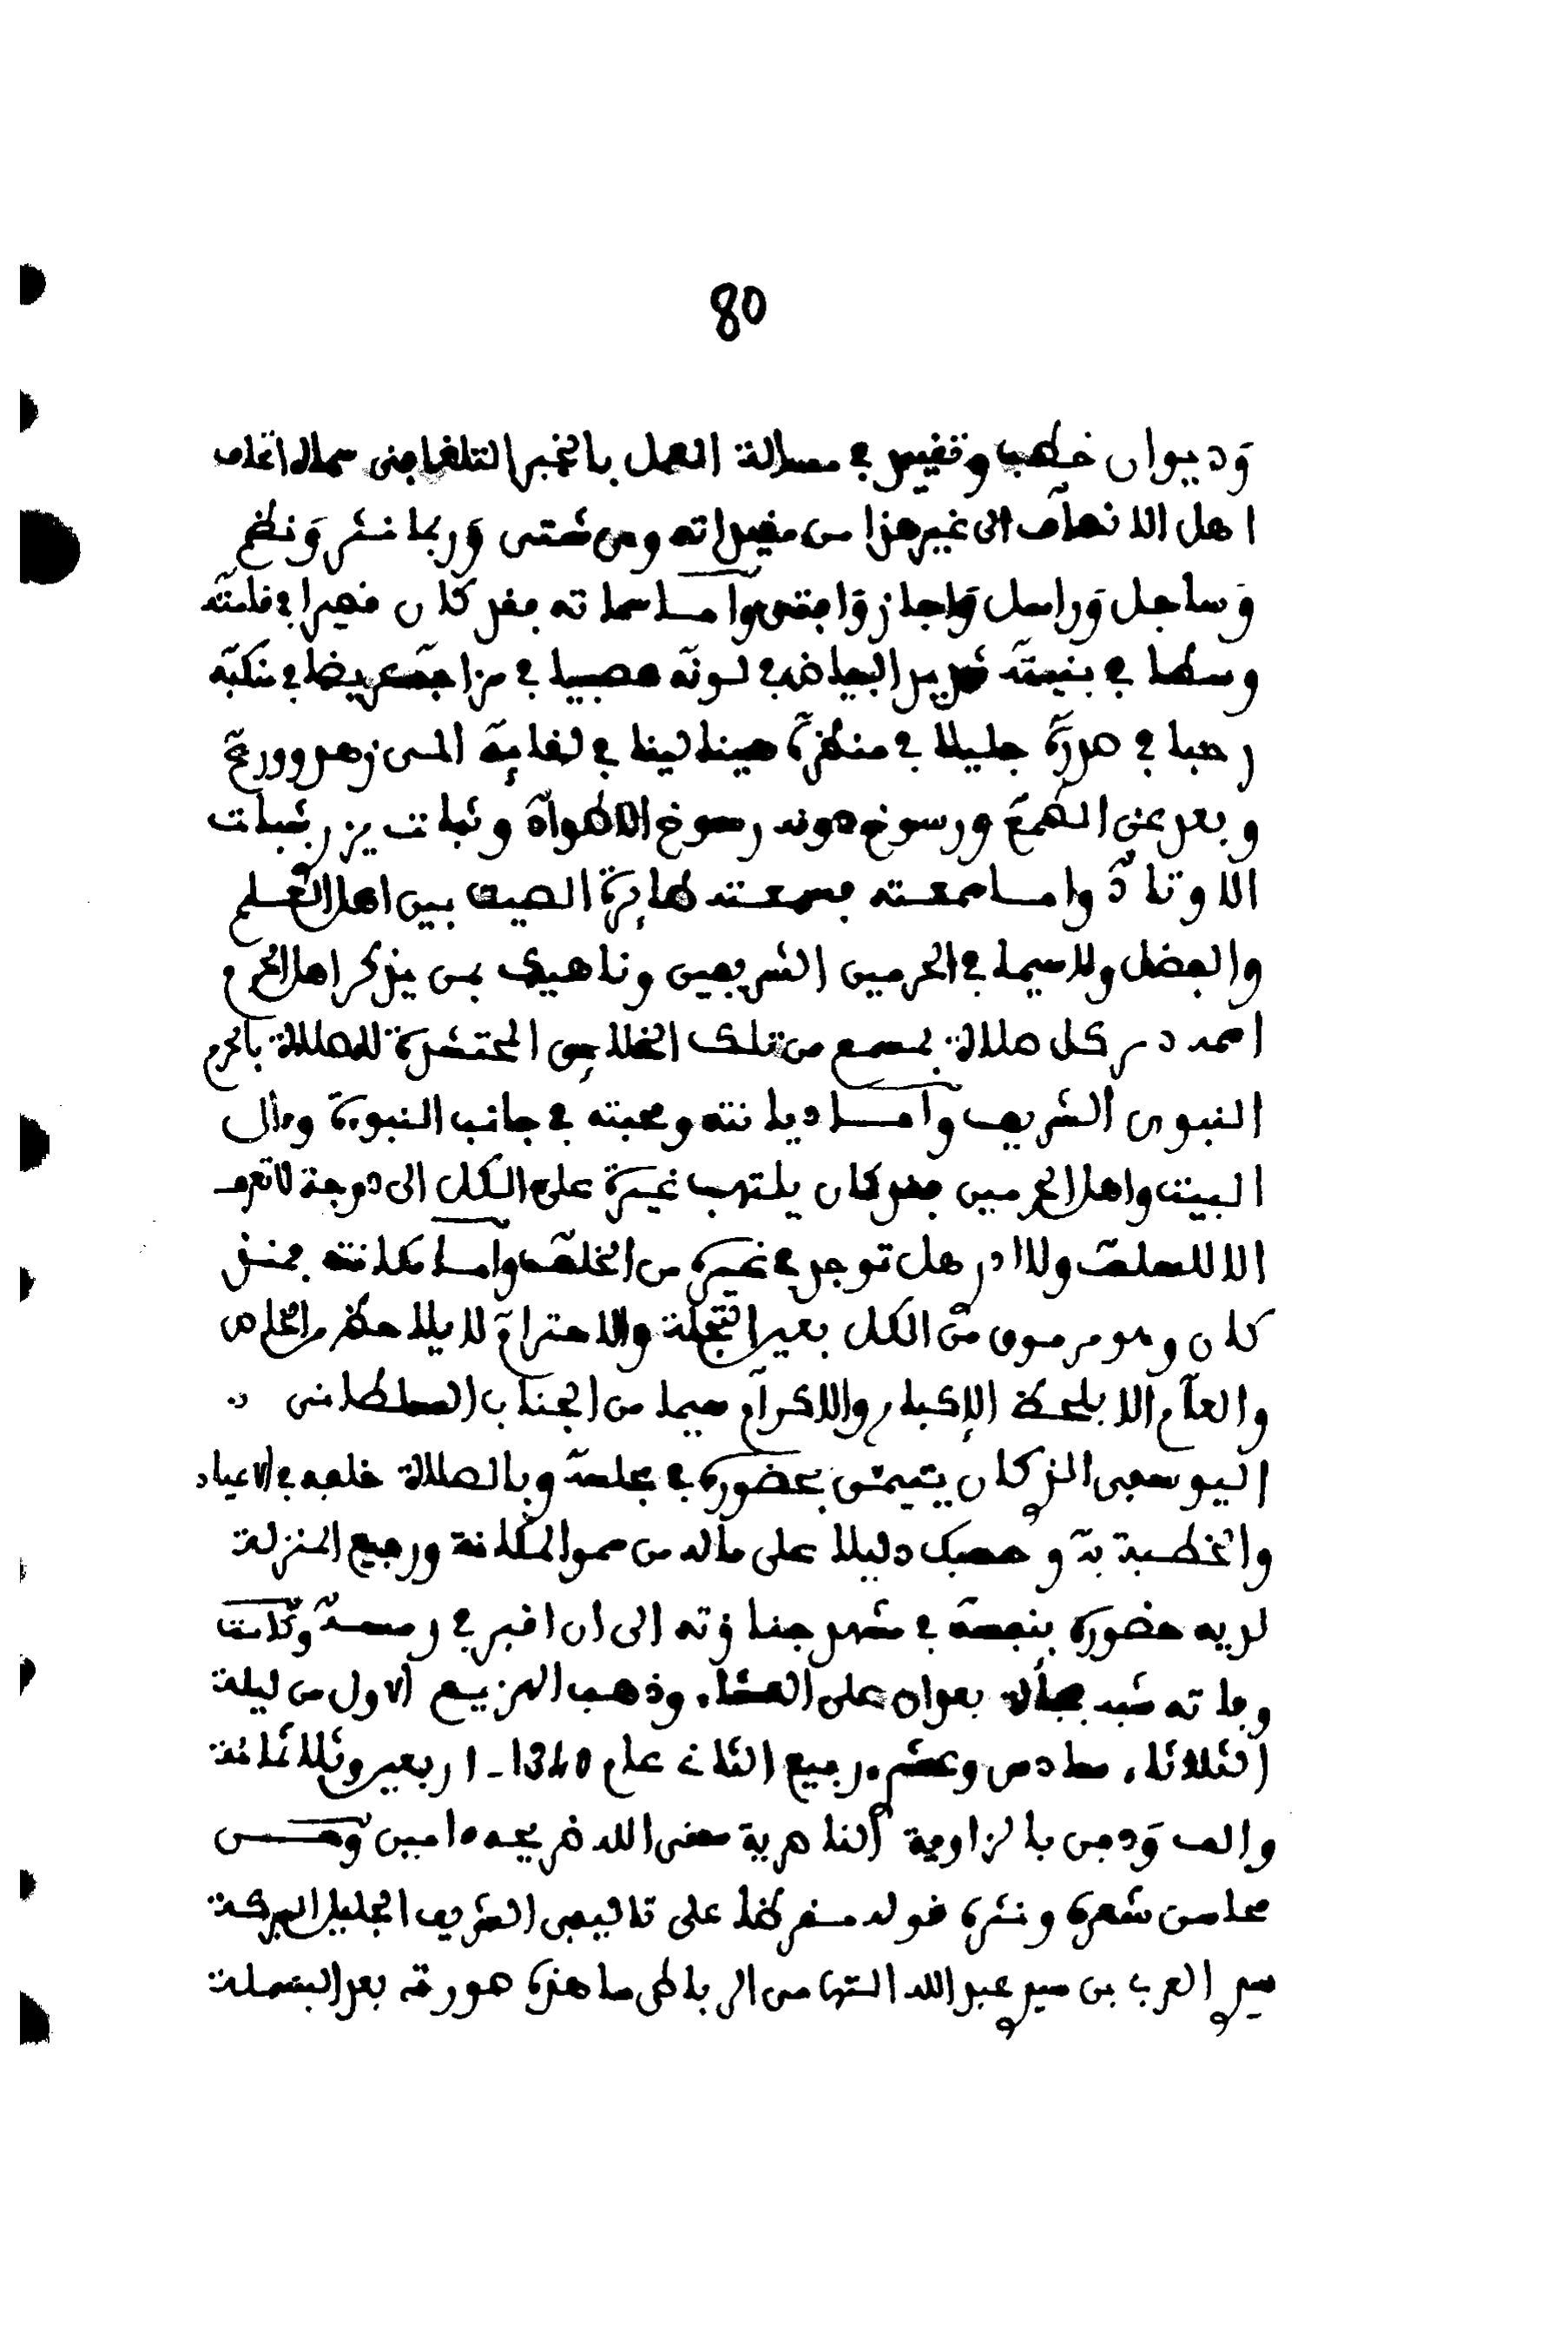 80
وديوان خطب وتقييد في مسالة العمل بالخبر التلغرافي سماه اتحاف
اهل الانصاف الى غير هذا من مقيداته ومن شتى وربما نثر ونظم
وساجل وراسل واجاز وافتى واما سماته فقد كان قصيرا في قامته
وسطا في بنيته شديد البياض في لونه عصبيا في مزاجه عريضا في منكبه
رحبا في صدره جليلا في منظره هينا لينا في لقائه الى زهد وورع
وبعد عن الطمع ورسوخ دونه رسوخ الاطواد وثبات يزري بثبات
الاوتاد واما سمعته فسمعته طائرة الصيت بين اهل العلم
والفضل ولا سيما في الحرمين الشريفين وناهيك بمن يذكر اهل الحرم
اسمه دبر كل صلاة بمسمع من تلك الخلائق المحتشدة للصلاة بالحرم
النبوي الشريف واما ديانته ومحبته في جانب النبوة وءال
البيت واهل الحرمين فقد كان يلتهب غيرة على الكل الى درجة لا تعرف
الا للسلف ولا ادر هل توجد في غيره من الخلف واما مكانته فمنذ
كان وهو مرموق من الكل بعين التجلة والاحترام لا يلاحظه الخاص
والعام الا بلحظ الإكبار والاكرام سيما من الجناب السلطاني
اليوسفي الذي كان يتيمن بحضوره في مجلسه وبالصلاة خلفه في الاعياد
والخطبة به وحسبك دليلا على ماله من سمو المكانة ورفيع المنزلة
لديه حضوره بنفسه في مشهد جنازته الى ان اقبر في رمسه وكانت
وفاته شبه فجأة بعواد على العشاء وذهب الهزيع الاول من ليلة
الثلاثاء سادس وعشري ربيع الثاني عام 1340 - اربعين وثلاثمائة
والف ودفن بالزاوية الناصرية سقى الله ضريحه ءامين ومن
محاسن شعره ونثره قوله مقرظا على تاليفي الشريف الجليل البركة
سيدي العربي بن سيدي عبد الله التهامي الرباطي ما هذه صورته بعد البسملة